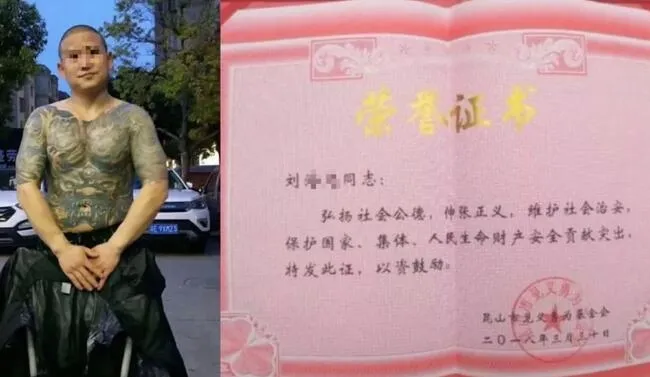 荣誉证书
刘
同志：
弘扬社会公德，伸张正义，维护社会治安，
保护国家、集体、人民生命财产安全贡献突出，
特发此证，以资鼓励。
昆山市见义勇为基金会
二〇一八年三月三十日